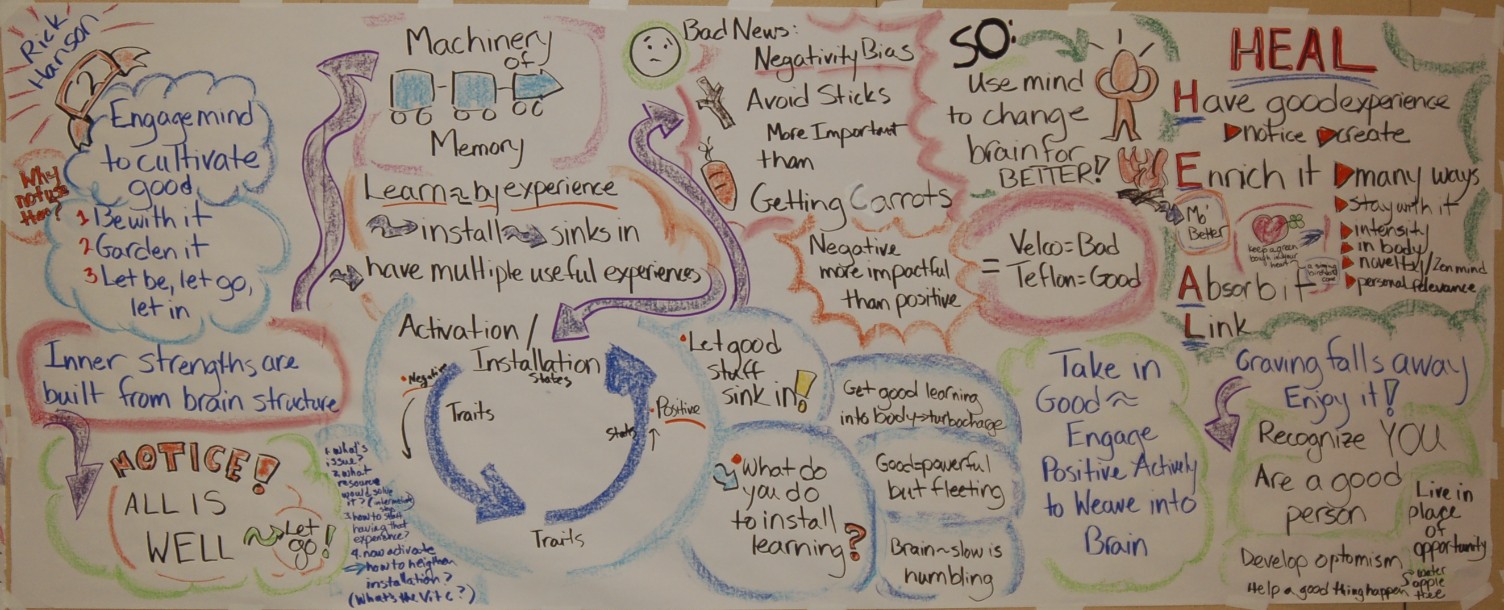 Rick
Hanson
2
Engage mind
to cultivate
good
Why
not us
then?
1 Be with it
2 Garden it
3 Let be, let go,
let in
Inner strengths are
built from brain structure
NOTICE!
ALL IS
WELL
Let
go!
1. what's
issue?
2. what
resource
would solve
it?
3 how to start
having that
experience?
4. now activate
how to heighten
installation?
(What's the Vit C?)
Machinery
of
Memory
Learn ~ by experience
install sinks in
have multiple useful experiences
Activation/
Installation
States
Negative
Traits
Positive
States
Traits
Bad News:
Negativity Bias
Avoid Sticks
More Important
than
Getting Carrots
Negative
more impactful
than positive
=
Velco=Bad
Teflon=Good
Let good
stuff
sink in!
What do
you do
to install
learning?
Get good learning
into body→turbocharge
Good=powerful
but fleeting
Brain~slow is
humbling
SO:
Use mind
to change
brain for
BETTER!
Take in
Good ≈
Engage
Positive Actively
to Weave into
Brain
HEAL
Have good experience
notice create
Enrich it
many ways
stay with it
intensity
in body
novelty/Zen mind
personal relevance
Mo'
Better
keep a green
bough in your
heart
a singing
bird will
come
Absorb it
Link
Craving falls away
Enjoy it!
Recognize YOU
Are a good
person
Live in
place
of
opportunity
Develop optomism
Help a good thing happen
water
apple
tree